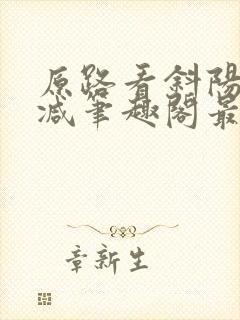 原路看斜陽
減筆趣閣最
章新生